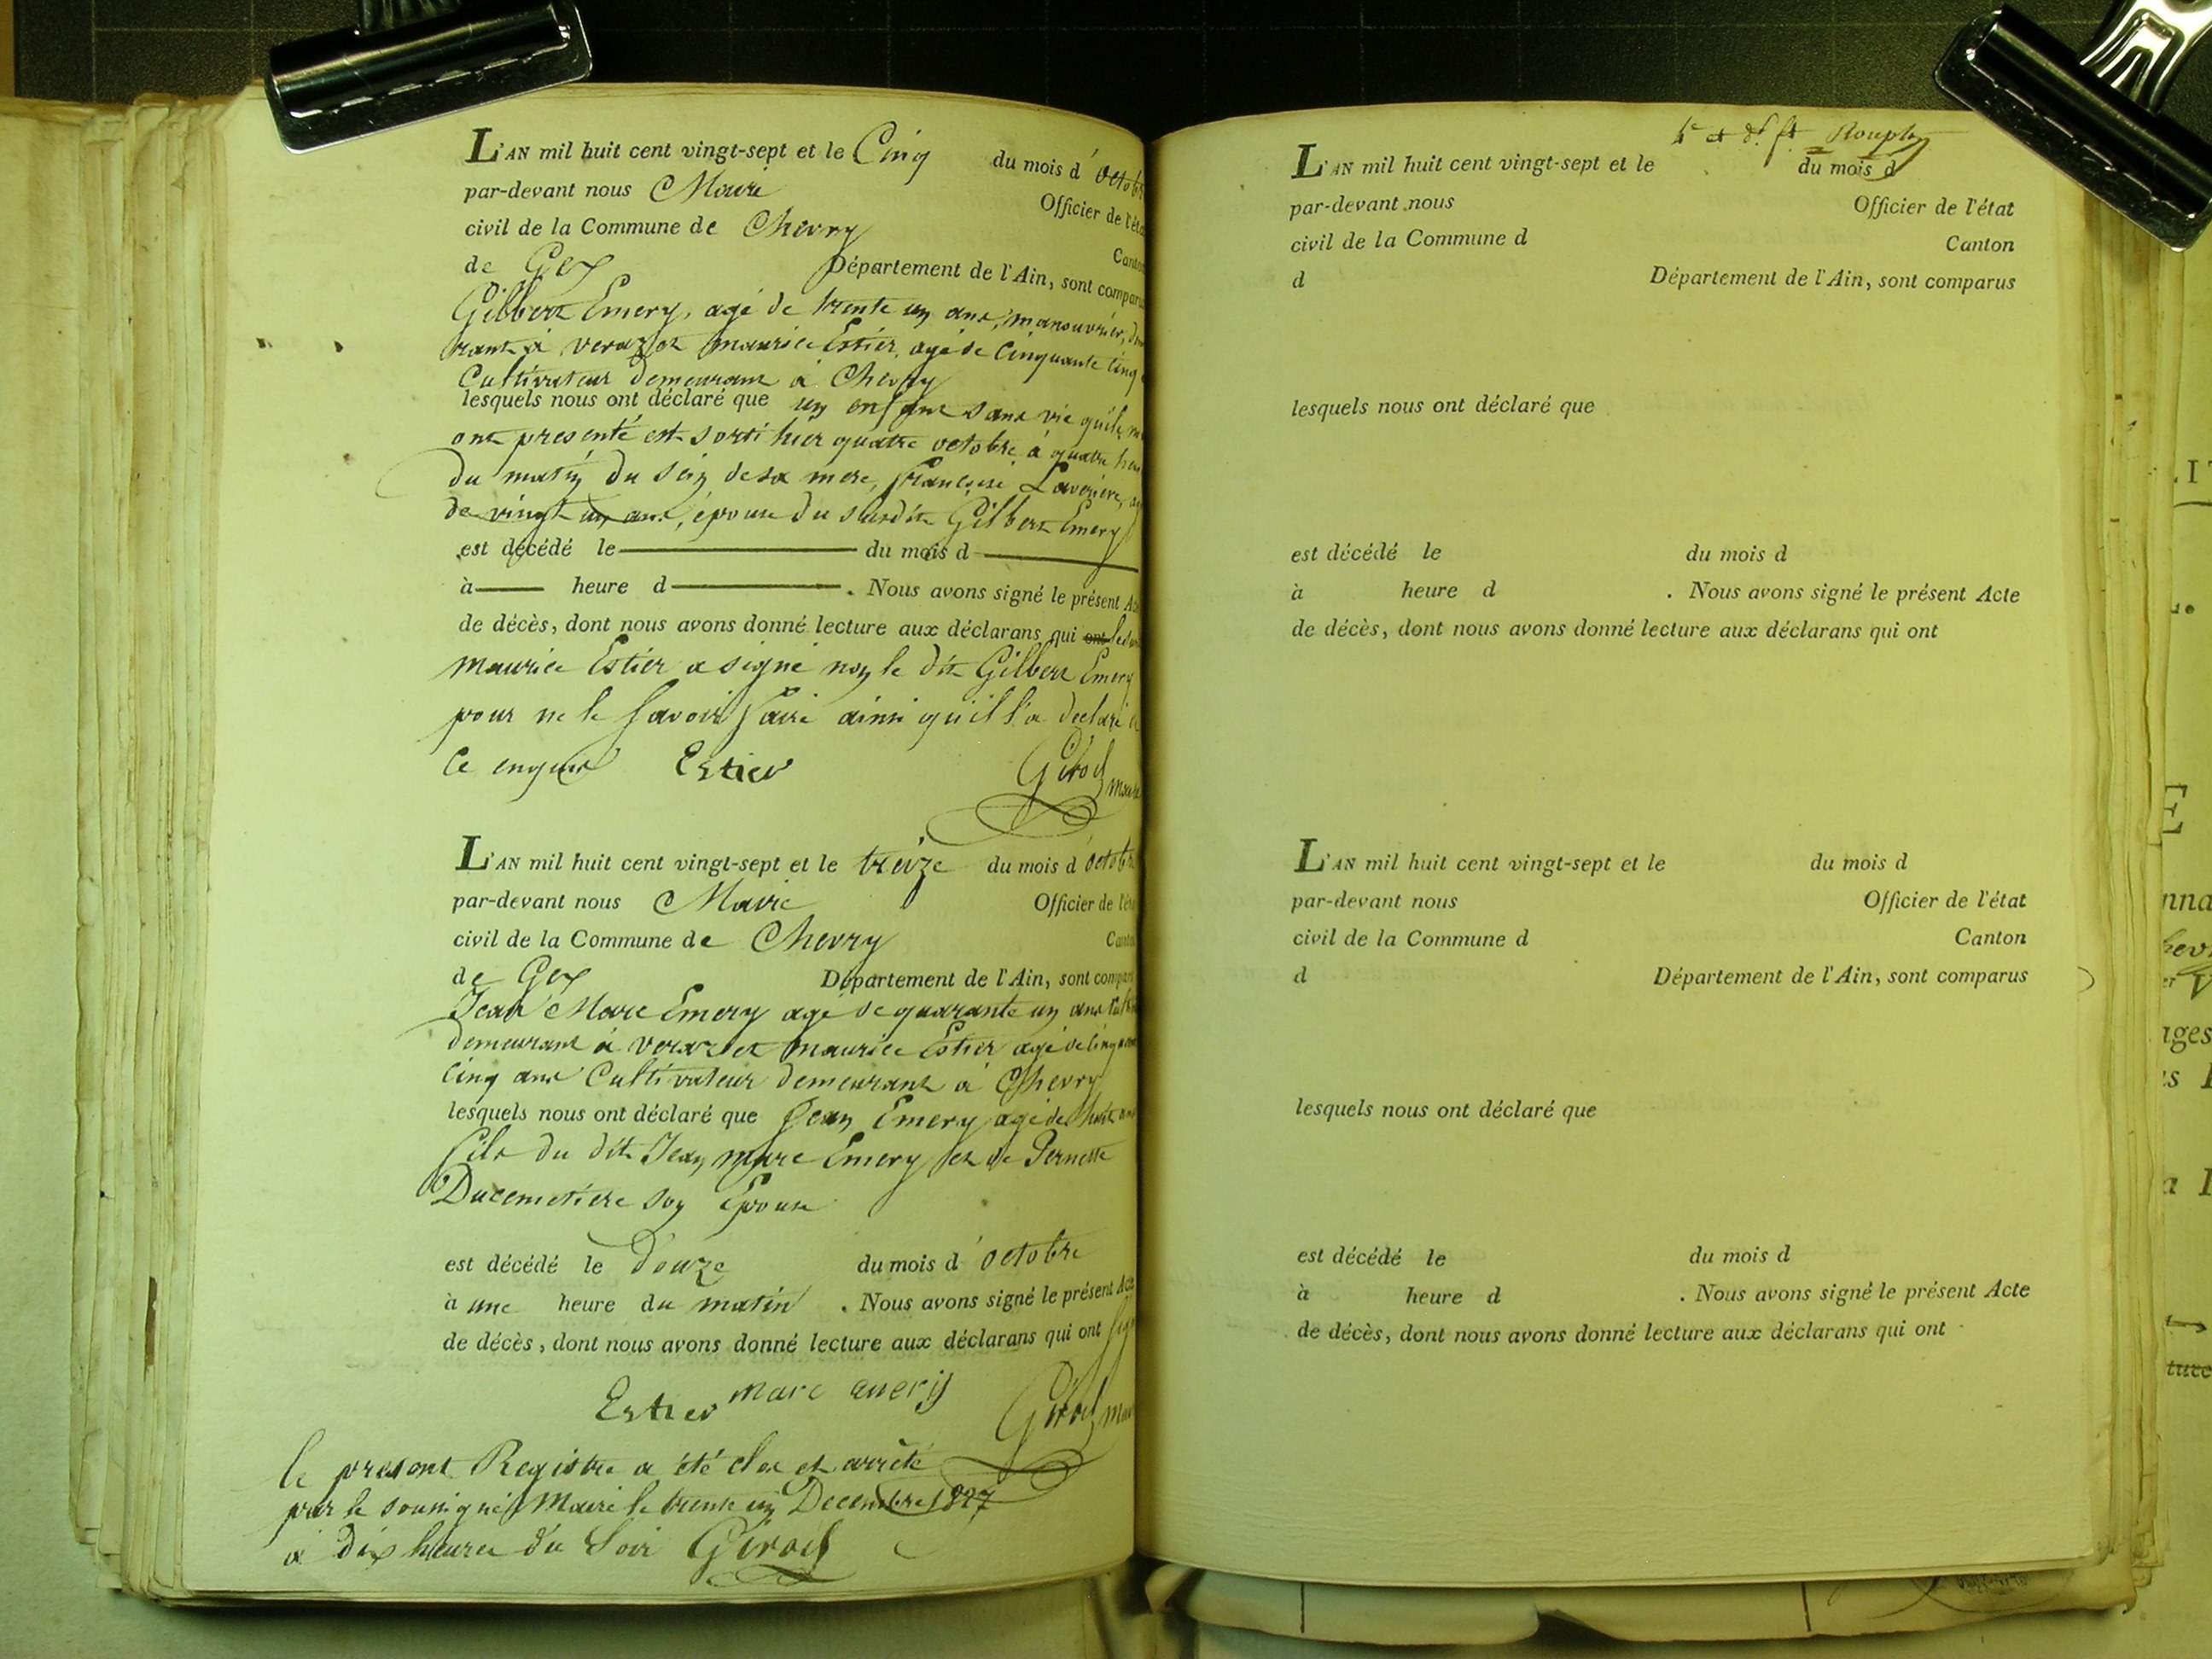 L'AN mil huit cent vingt-sept et le Cinq du mois d'octobr
par-devant nous Maire Officier de l'éta
civil de la Commune de Chevry Canto
de Gex Département de l'Ain, sont comparu
Gilbert Emery, agé de trente un ans, manouvrier, dem
rant à veraz et maurice Estier, agé de Cinquante Cinq
Cultivateur demeurant à Chevry
lesquels nous ont déclaré que un enfant sans vie qu'ils m
ont presenté est sorti hier quatre octobre à quatre heu
du matin du sein de sa mere, francoise Laveriere, ag
de vingt un ans, épouse du susdit Gilbert Emery
est décédé le du mois d
à heure d . Nous avons signé le présent Ac
de décès, dont nous avons donné lecture aux déclarans qui ont
maurice Estier a signé non le dit Gilbert Emery
pour ne le savoir faire ainsi qu'il l'a declaré
Ce enquis Estier Girod maire
L'AN mil huit cent vingt-sept et le treize du mois d'octobre
par-devant nous Maire Officier de l'éta
civil de la Commune de Chevry Canto
de Gex Département de l'Ain, sont compar
Jean Marc Emery agé de quarante un ans cult
demeurant à veraz et maurice Estier agé de Cinquan
Cinq ans Cultivateur demeurant à Chevry
lesquels nous ont déclaré que Jean Emery agé de huit an
fils du dit Jean marc Emery et de Pernette
Ducimetiere son Epouse
est décédé le douze du mois d'octobre
à une heure du matin . Nous avons signé le présent Acte
de décès, dont nous avons donné lecture aux déclarans qui ont sign
Estier marc emery Girod mai
le present Registre a été clos et arrêté
par le soussigné Maire le trente un Decembre 1827
à dix heures du Soir Girod
L'AN mil huit cent vingt-sept et le du mois d
par-devant nous Officier de l'état
civil de la Commune d Canton
d Département de l'Ain, sont comparus
lesquels nous ont déclaré que
est décédé le du mois d
à heure d . Nous avons signé le présent Acte
de décès, dont nous avons donné lecture aux déclarans qui ont
L'AN mil huit cent vingt-sept et le du mois d
par-devant nous Officier de l'état
civil de la Commune d Canton
d Département de l'Ain, sont comparus
lesquels nous ont déclaré que
est décédé le du mois d
à heure d . Nous avons signé le présent Acte
de décès, dont nous avons donné lecture aux déclarans qui ont